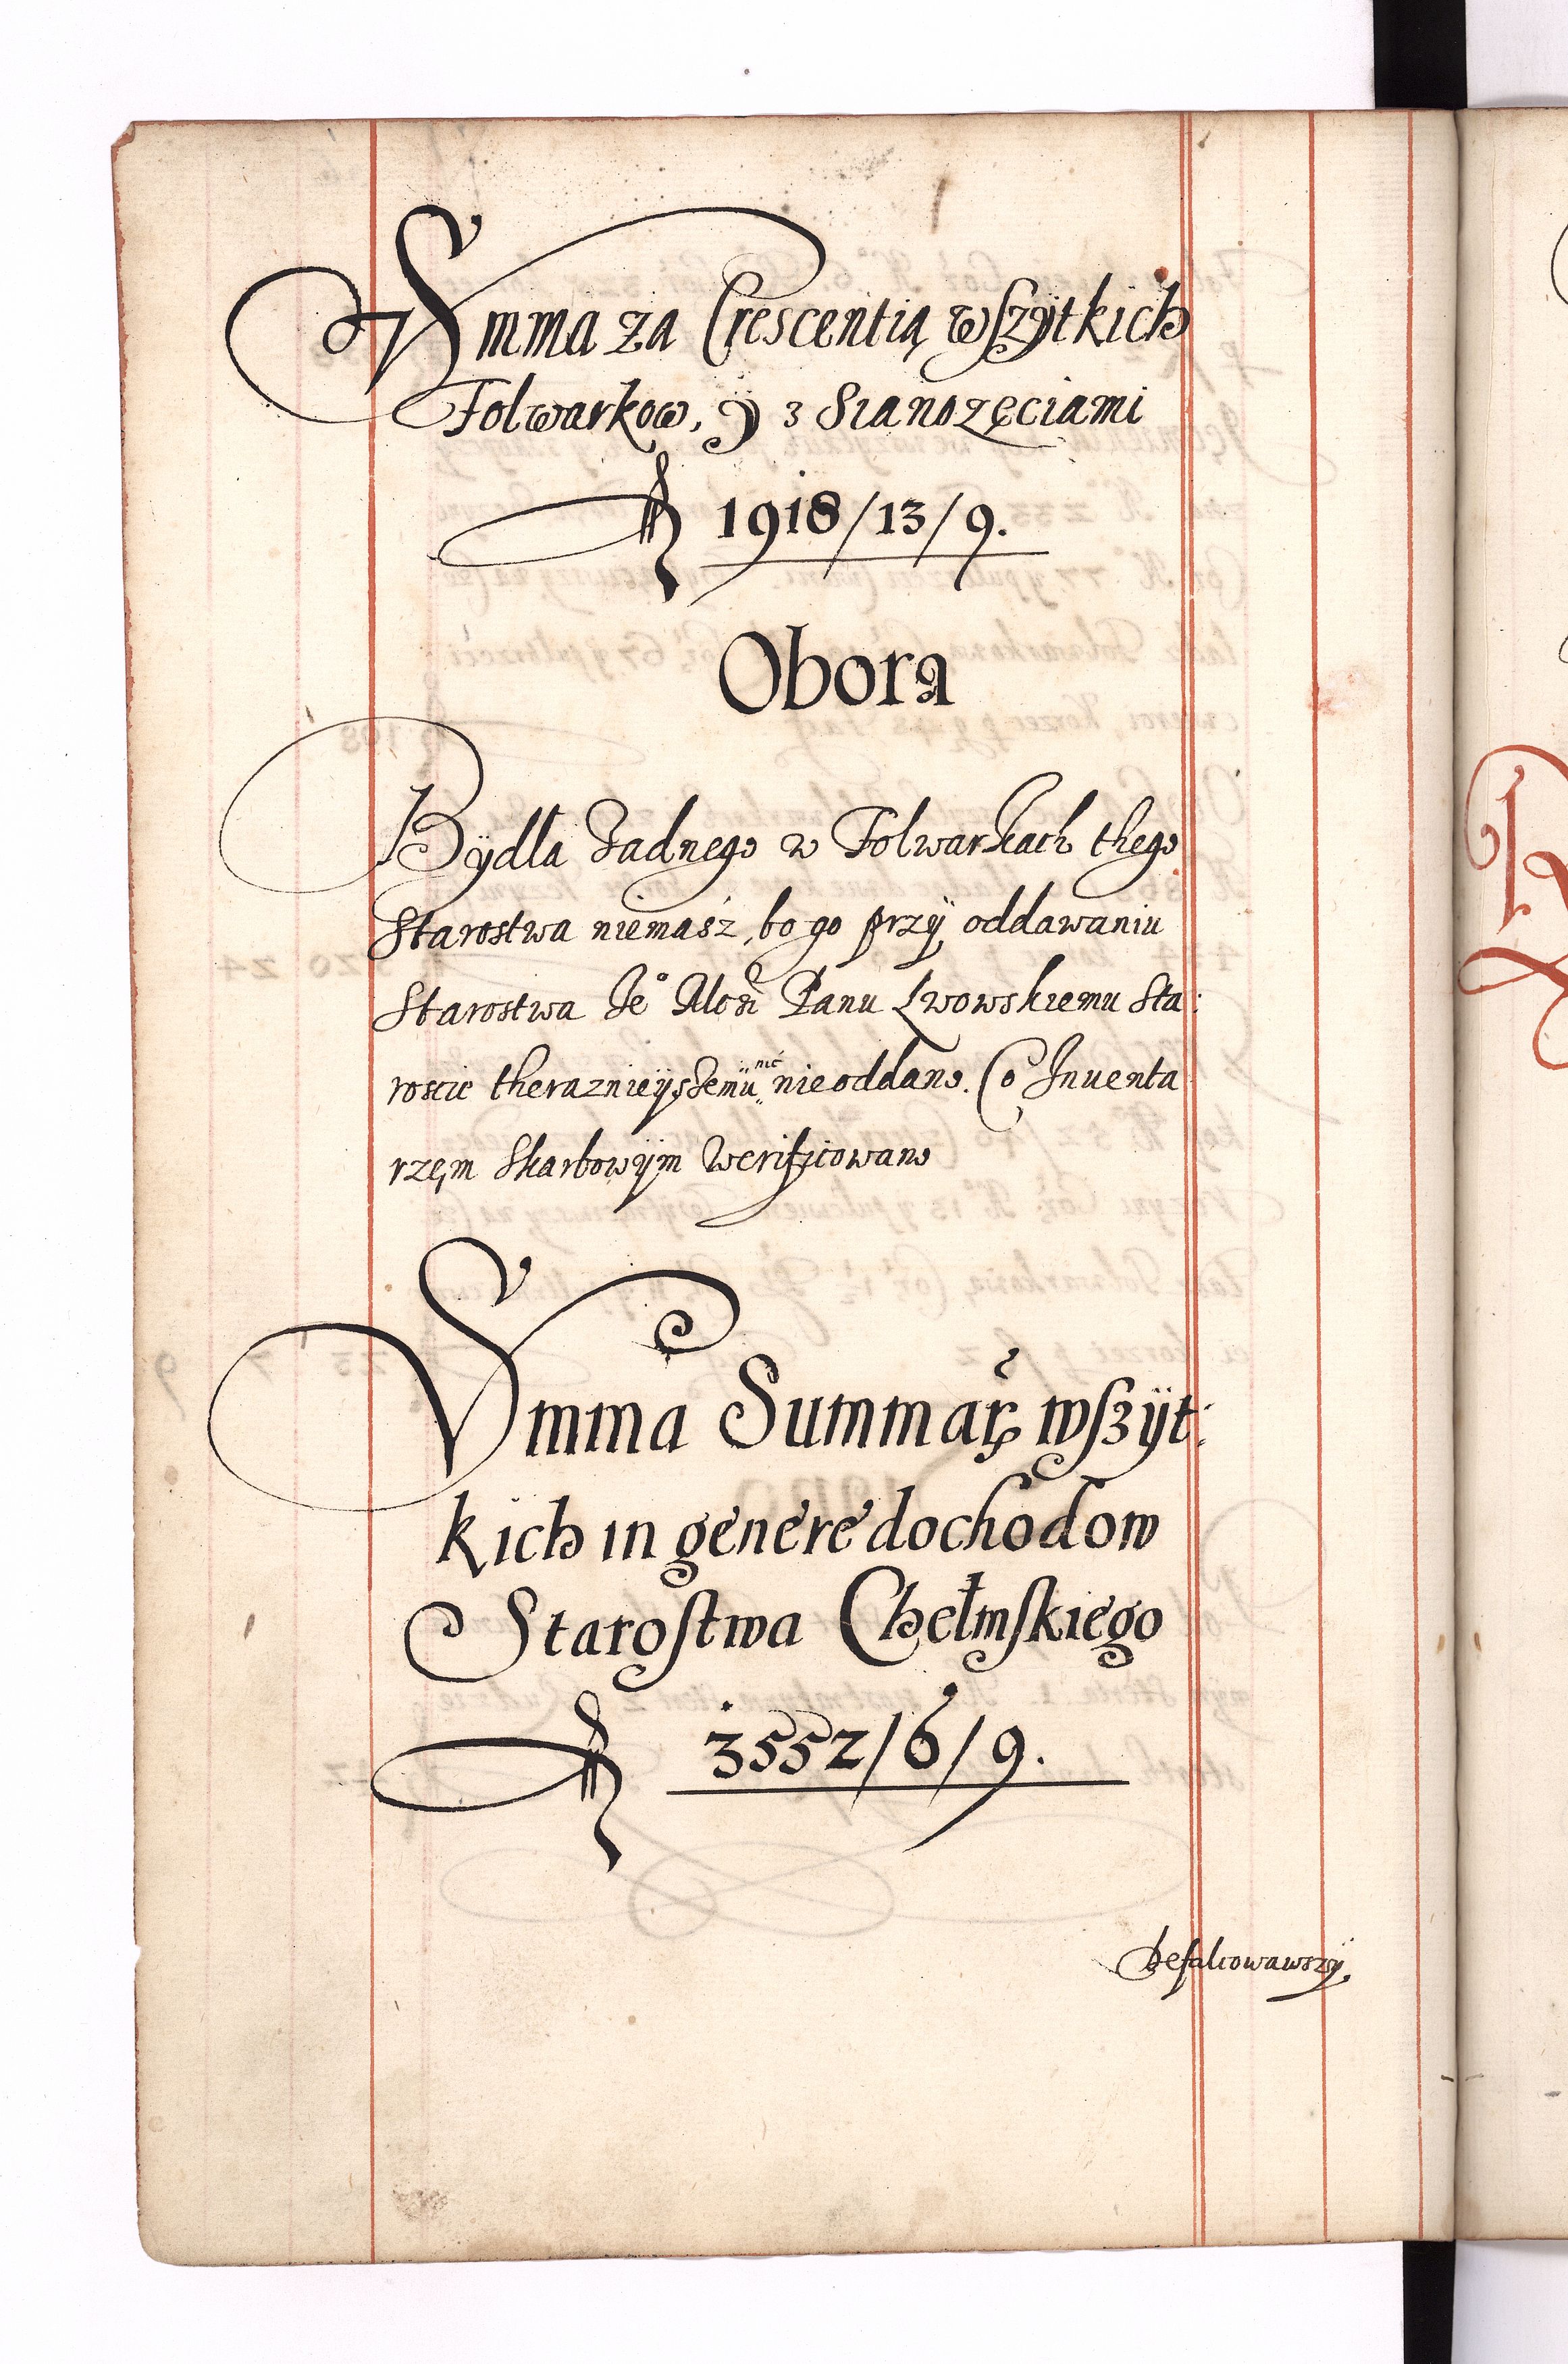 Summa za Crescentią wszÿtkich
Folwarkow, y z Sianozęciami
fl 1918/13/9.
Obora
Bÿdła żadnego w Folwarkach thego
Starostwa niemasz, bo go przÿ oddawaniu
Starostwa Je° Mość Panu Lwowskiemu Sta:
roscie theraznieÿszemu nic nieoddano. Co Inuenta
rzem Skarbowÿm Werificowano
Summa Summar wszÿt:
kich in genere dochodow
Starostwa Chełmskiego
fl 3552/6/9.
Defalcowawszÿ